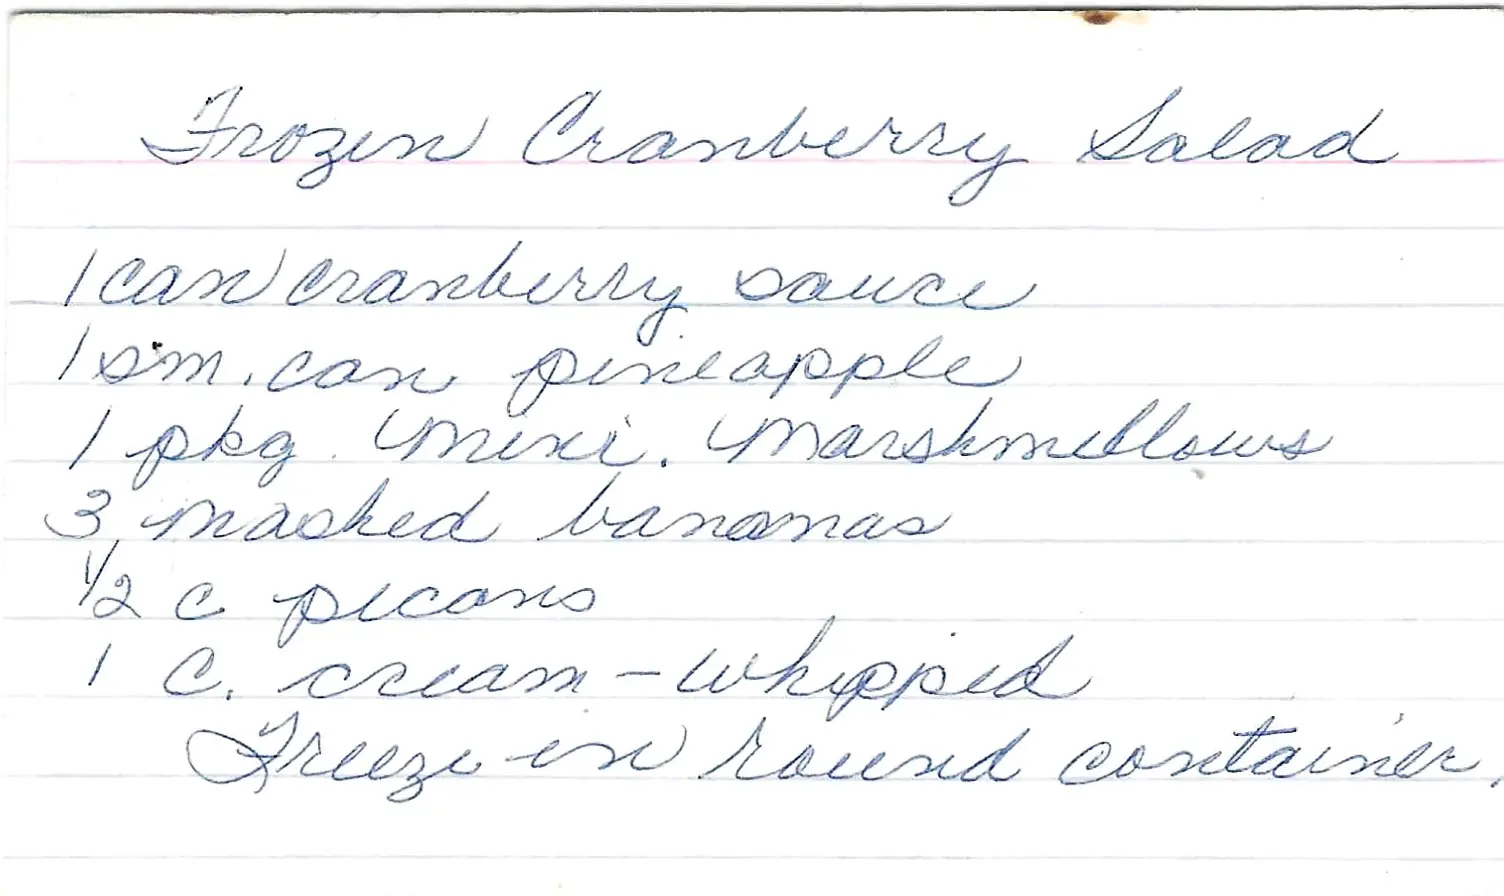 Frozen Cranberry Salad
1 can cranberry sauce
1 sm. can pineapple
1 pkg. mini. marshmellows
3 mashed bananas
1/2 c pecans
1 c. cream - whipped
Freeze in round container.